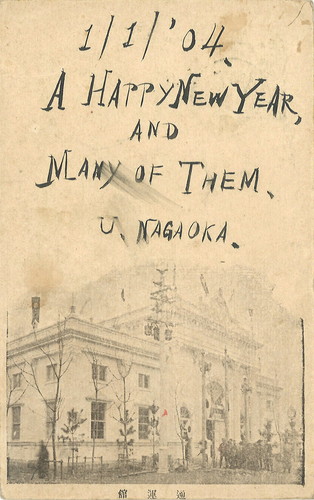 1/1/'04.
A HAPPY NEW YEAR,
AND
MANY OF THEM.
U. NAGAOKA.
館運通